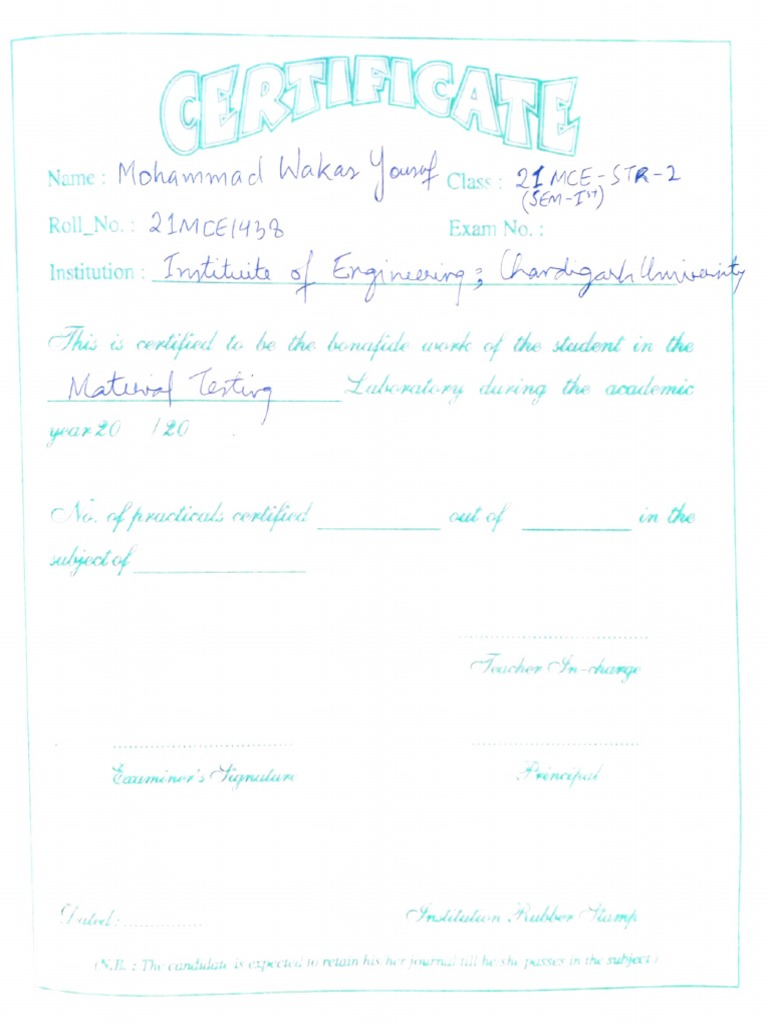 CERTIFICATE
Name : Mohammad Wakas Yousuf Class : 21MCE-STR-2
(SEM-Ist)
Roll_No. : 21MCE1438 Exam No. :
Institution : Instituite of Engineering; Chandigarh University
This is certified to be the bonafide work of the student in the
Material Testing Laboratory during the academic
year 20 /20 .
No. of practicals certified ____________ out of __________ in the
subject of ________________
Teacher In-charge
Examiner's Signature Principal
Dated:.............. Institution Rubber Stamp
(N.B. : The candidate is expected to retain his her journal till he she passes in the subject)